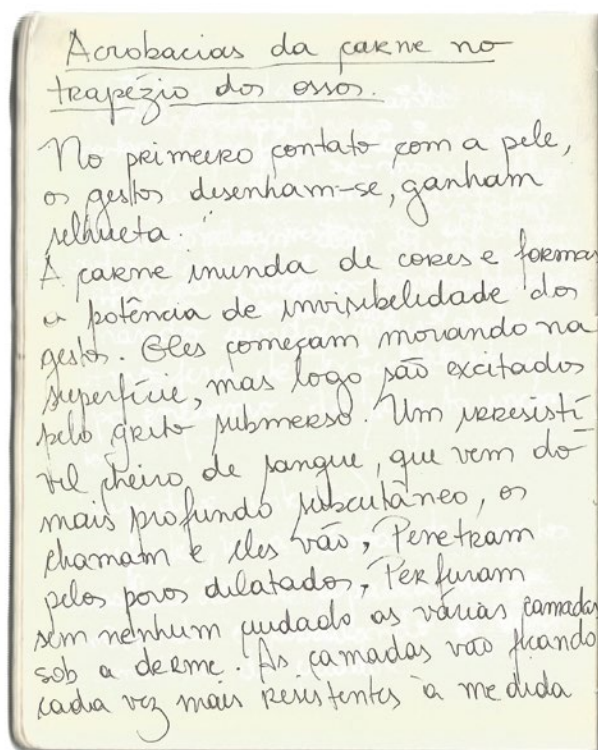 Acrobacias da carne no
trapézio dos ossos.
No primeiro contato com a pele,
os gestos desenham-se, ganham
silhueta.
A carne inunda de cores e formas
a potência de invisibilidade dos
gestos. Eles começam morando na
superfície, mas logo são excitados
pelo grito submerso. Um irresistí
vel cheiro de sangue, que vem do
mais profundo subcutâneo, os
chamam e eles vão, Penetram
pelos poros dilatados, Perfuram
sem nenhum cuidado as várias camadas
sob a derme. As camadas vão ficando
cada vez mais resistentes à medida